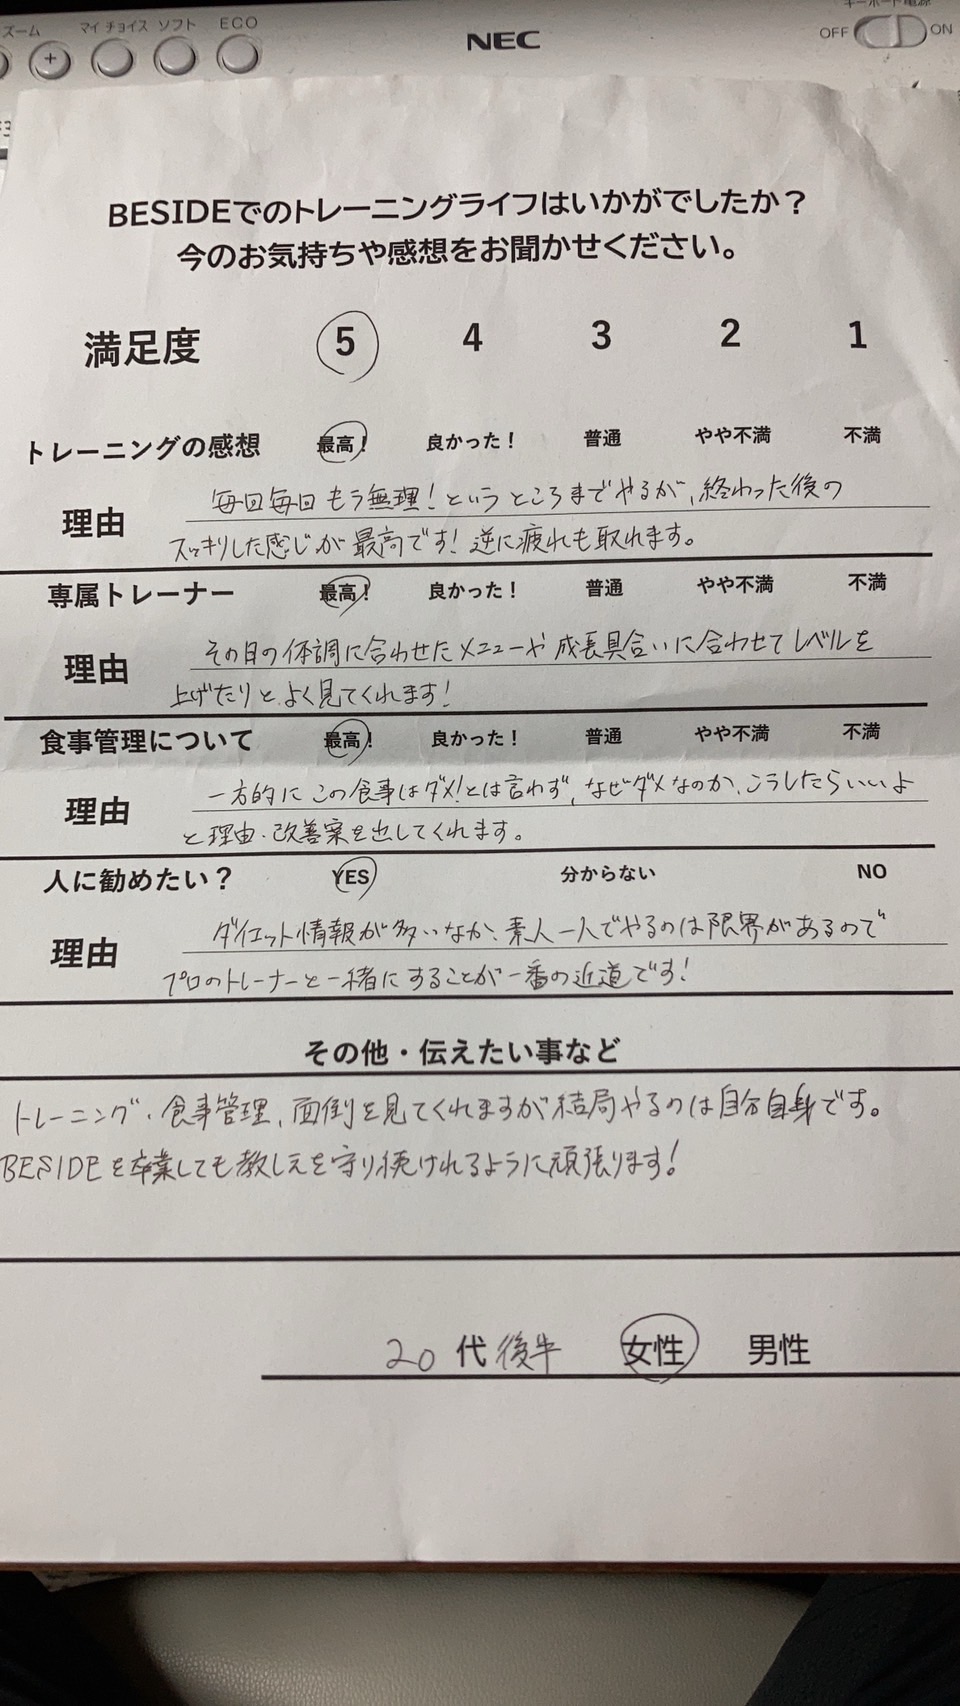 ズーム マイ チョイス ソフト ECO
NEC
キーボード電源
OFF ON
BESIDEでのトレーニングライフはいかがでしたか？
今のお気持ちや感想をお聞かせください。
満足度 5 4 3 2 1
トレーニングの感想 最高！ 良かった！ 普通 やや不満 不満
理由 毎回毎回もう無理！というところまでやるが、終わった後の
スッキリした感じが最高です！逆に疲れも取れます。
専属トレーナー 最高！ 良かった！ 普通 やや不満 不満
理由 その日の体調に合わせたメニューや成長具合いに合わせてレベルを
上げたりと、よく見てくれます！
食事管理について 最高！ 良かった！ 普通 やや不満 不満
理由 一方的にこの食事はダメ！とは言わず、なぜダメなのか、こうしたらいいよ
と理由・改善案を出してくれます。
人に勧めたい？ YES 分からない NO
理由 ダイエット情報が多いなか、素人一人でやるのは限界があるので
プロのトレーナーと一緒にすることが一番の近道です！
その他・伝えたい事など
トレーニング・食事管理、面倒を見てくれますが結局やるのは自分自身です。
BESIDEを卒業しても教えを守り続けれるように頑張ります！
20代後半 女性 男性